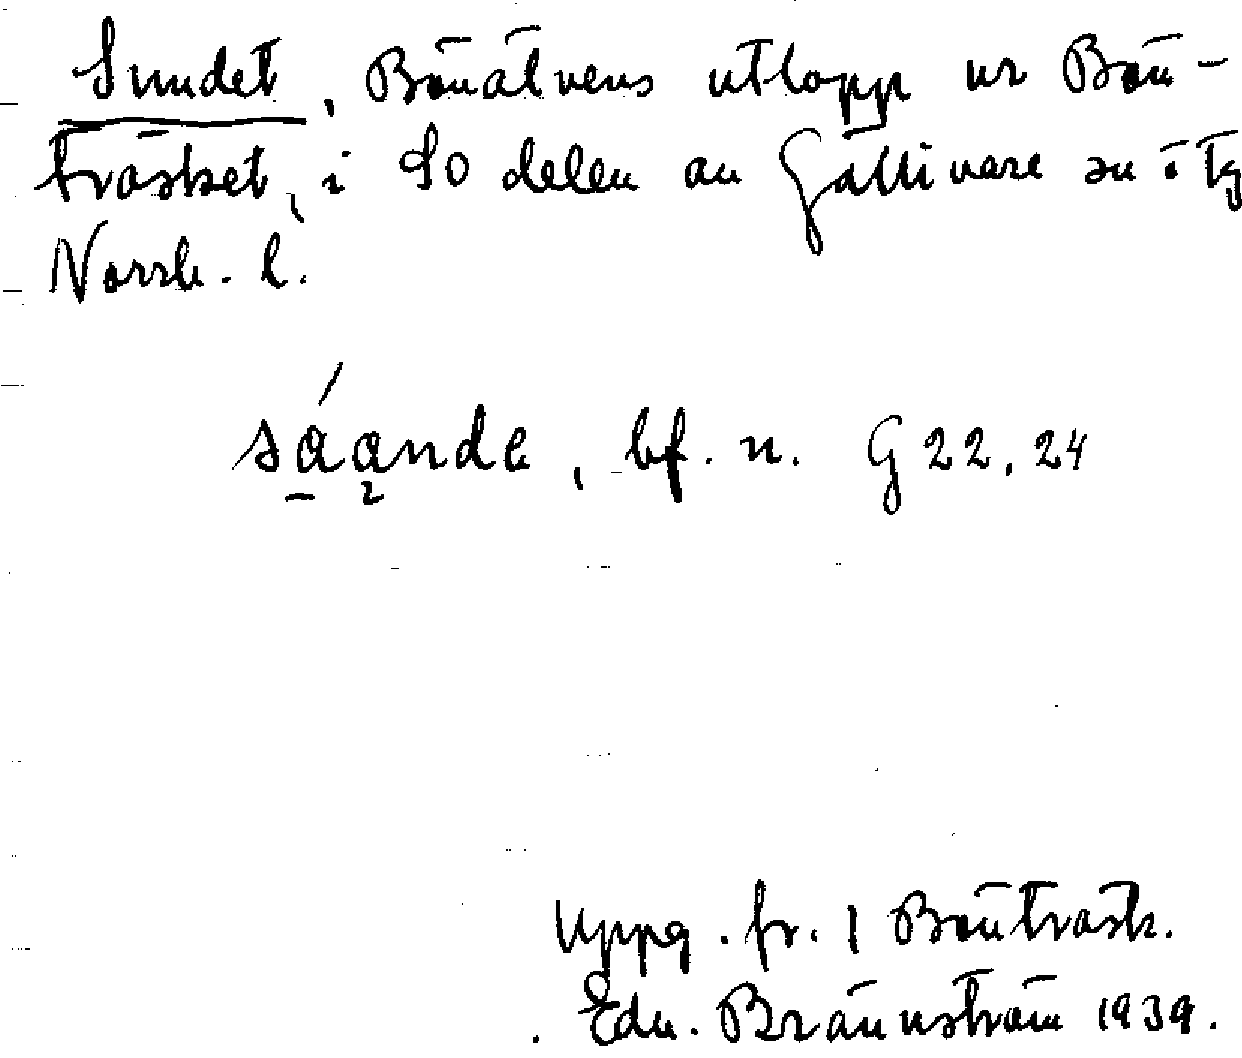 Sundet, Bönälvens utlopp ur Bön-
träsket, i SO delen av Gällivare sn i
Norrb. l.
såande, bf. n. G 22, 24
Uppg. fr. 1 Bönträsk.
Edv. Brännström 1939.